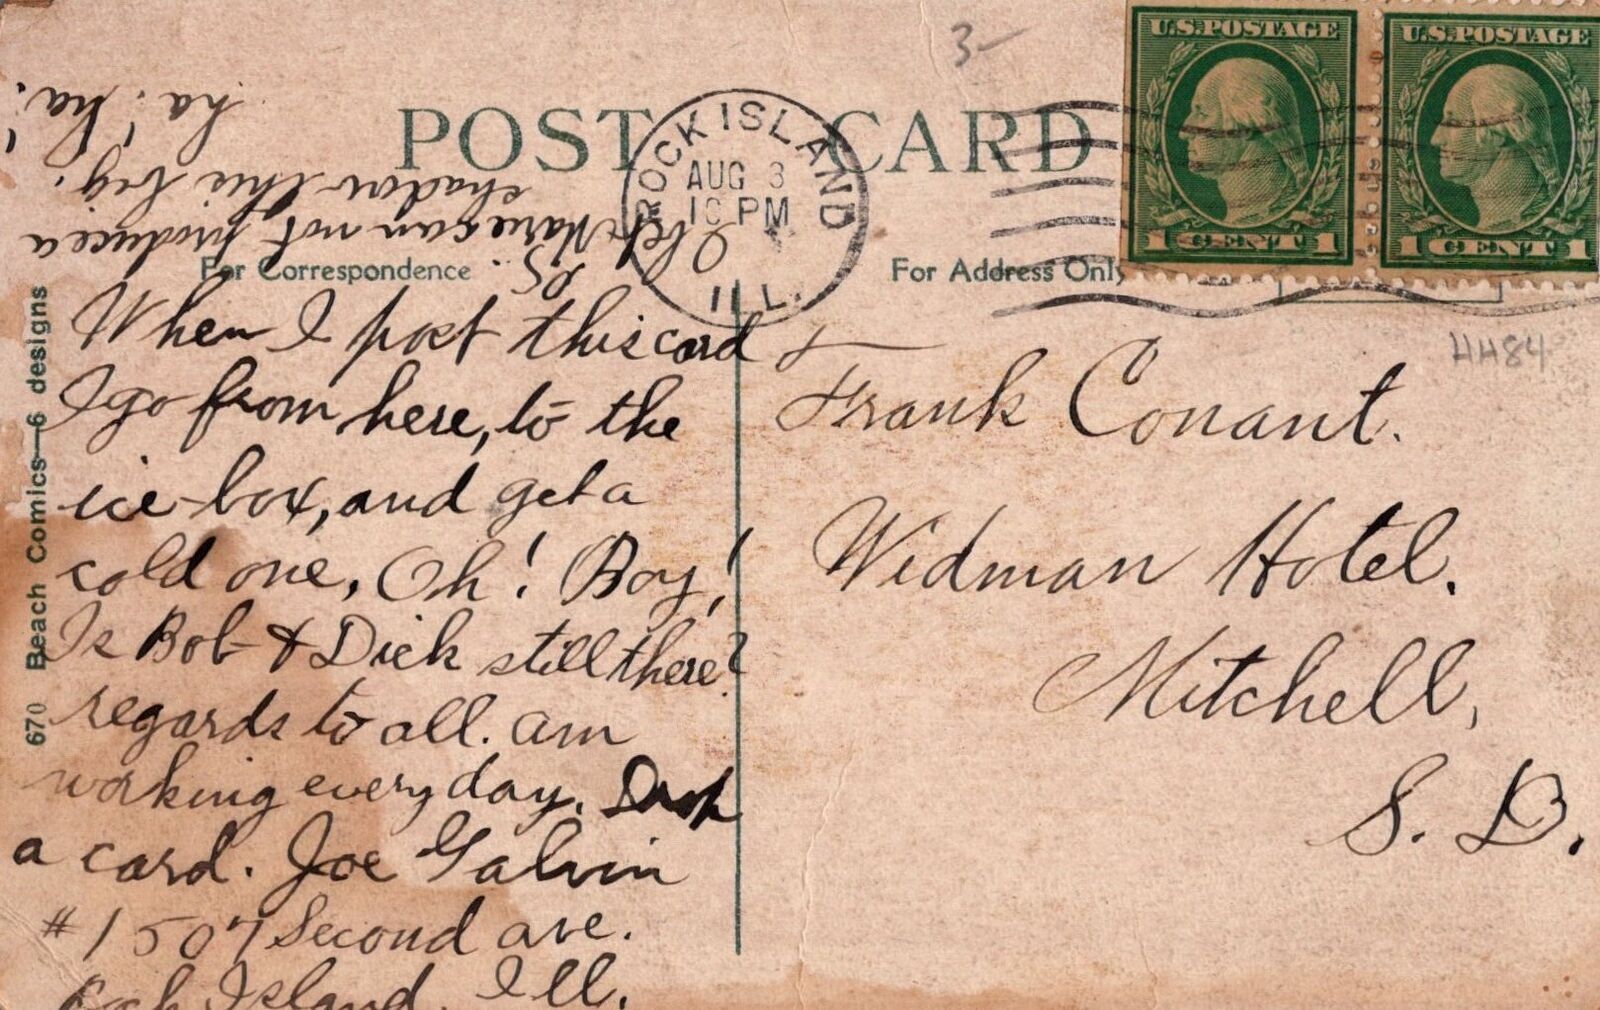 3-
U.S. POSTAGE
1 CENT 1
U.S. POSTAGE
1 CENT 1
POST CARD
ROCK ISLAND
AUG 3
10 PM
ILL.
For Correspondence
For Address Only
HH84
When I post this card
I go from here, to the
ice-box, and get a
cold one, Oh! Boy!
Is Bob & Dick still there?
regards to all. am
working every day. Drop
a card. Joe Galvin
#1507 Second ave.
Rock Island, Ill.
PS. I bet Marie can not produce a
shadow this big.
ha! ha!
Frank Conant.
Widman Hotel.
Mitchell,
S. D.
670 Beach Comics—6 designs